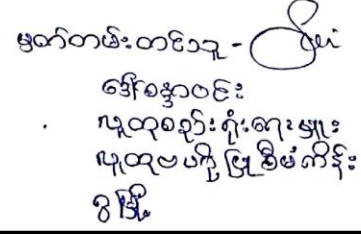 မှတ်တမ်းတင်သူ -
ဒေါ်စန္ဒာဝင်း
လူထုစည်းရုံးရေးမှူး
လူထုဗဟိုပြုစီမံကိန်း